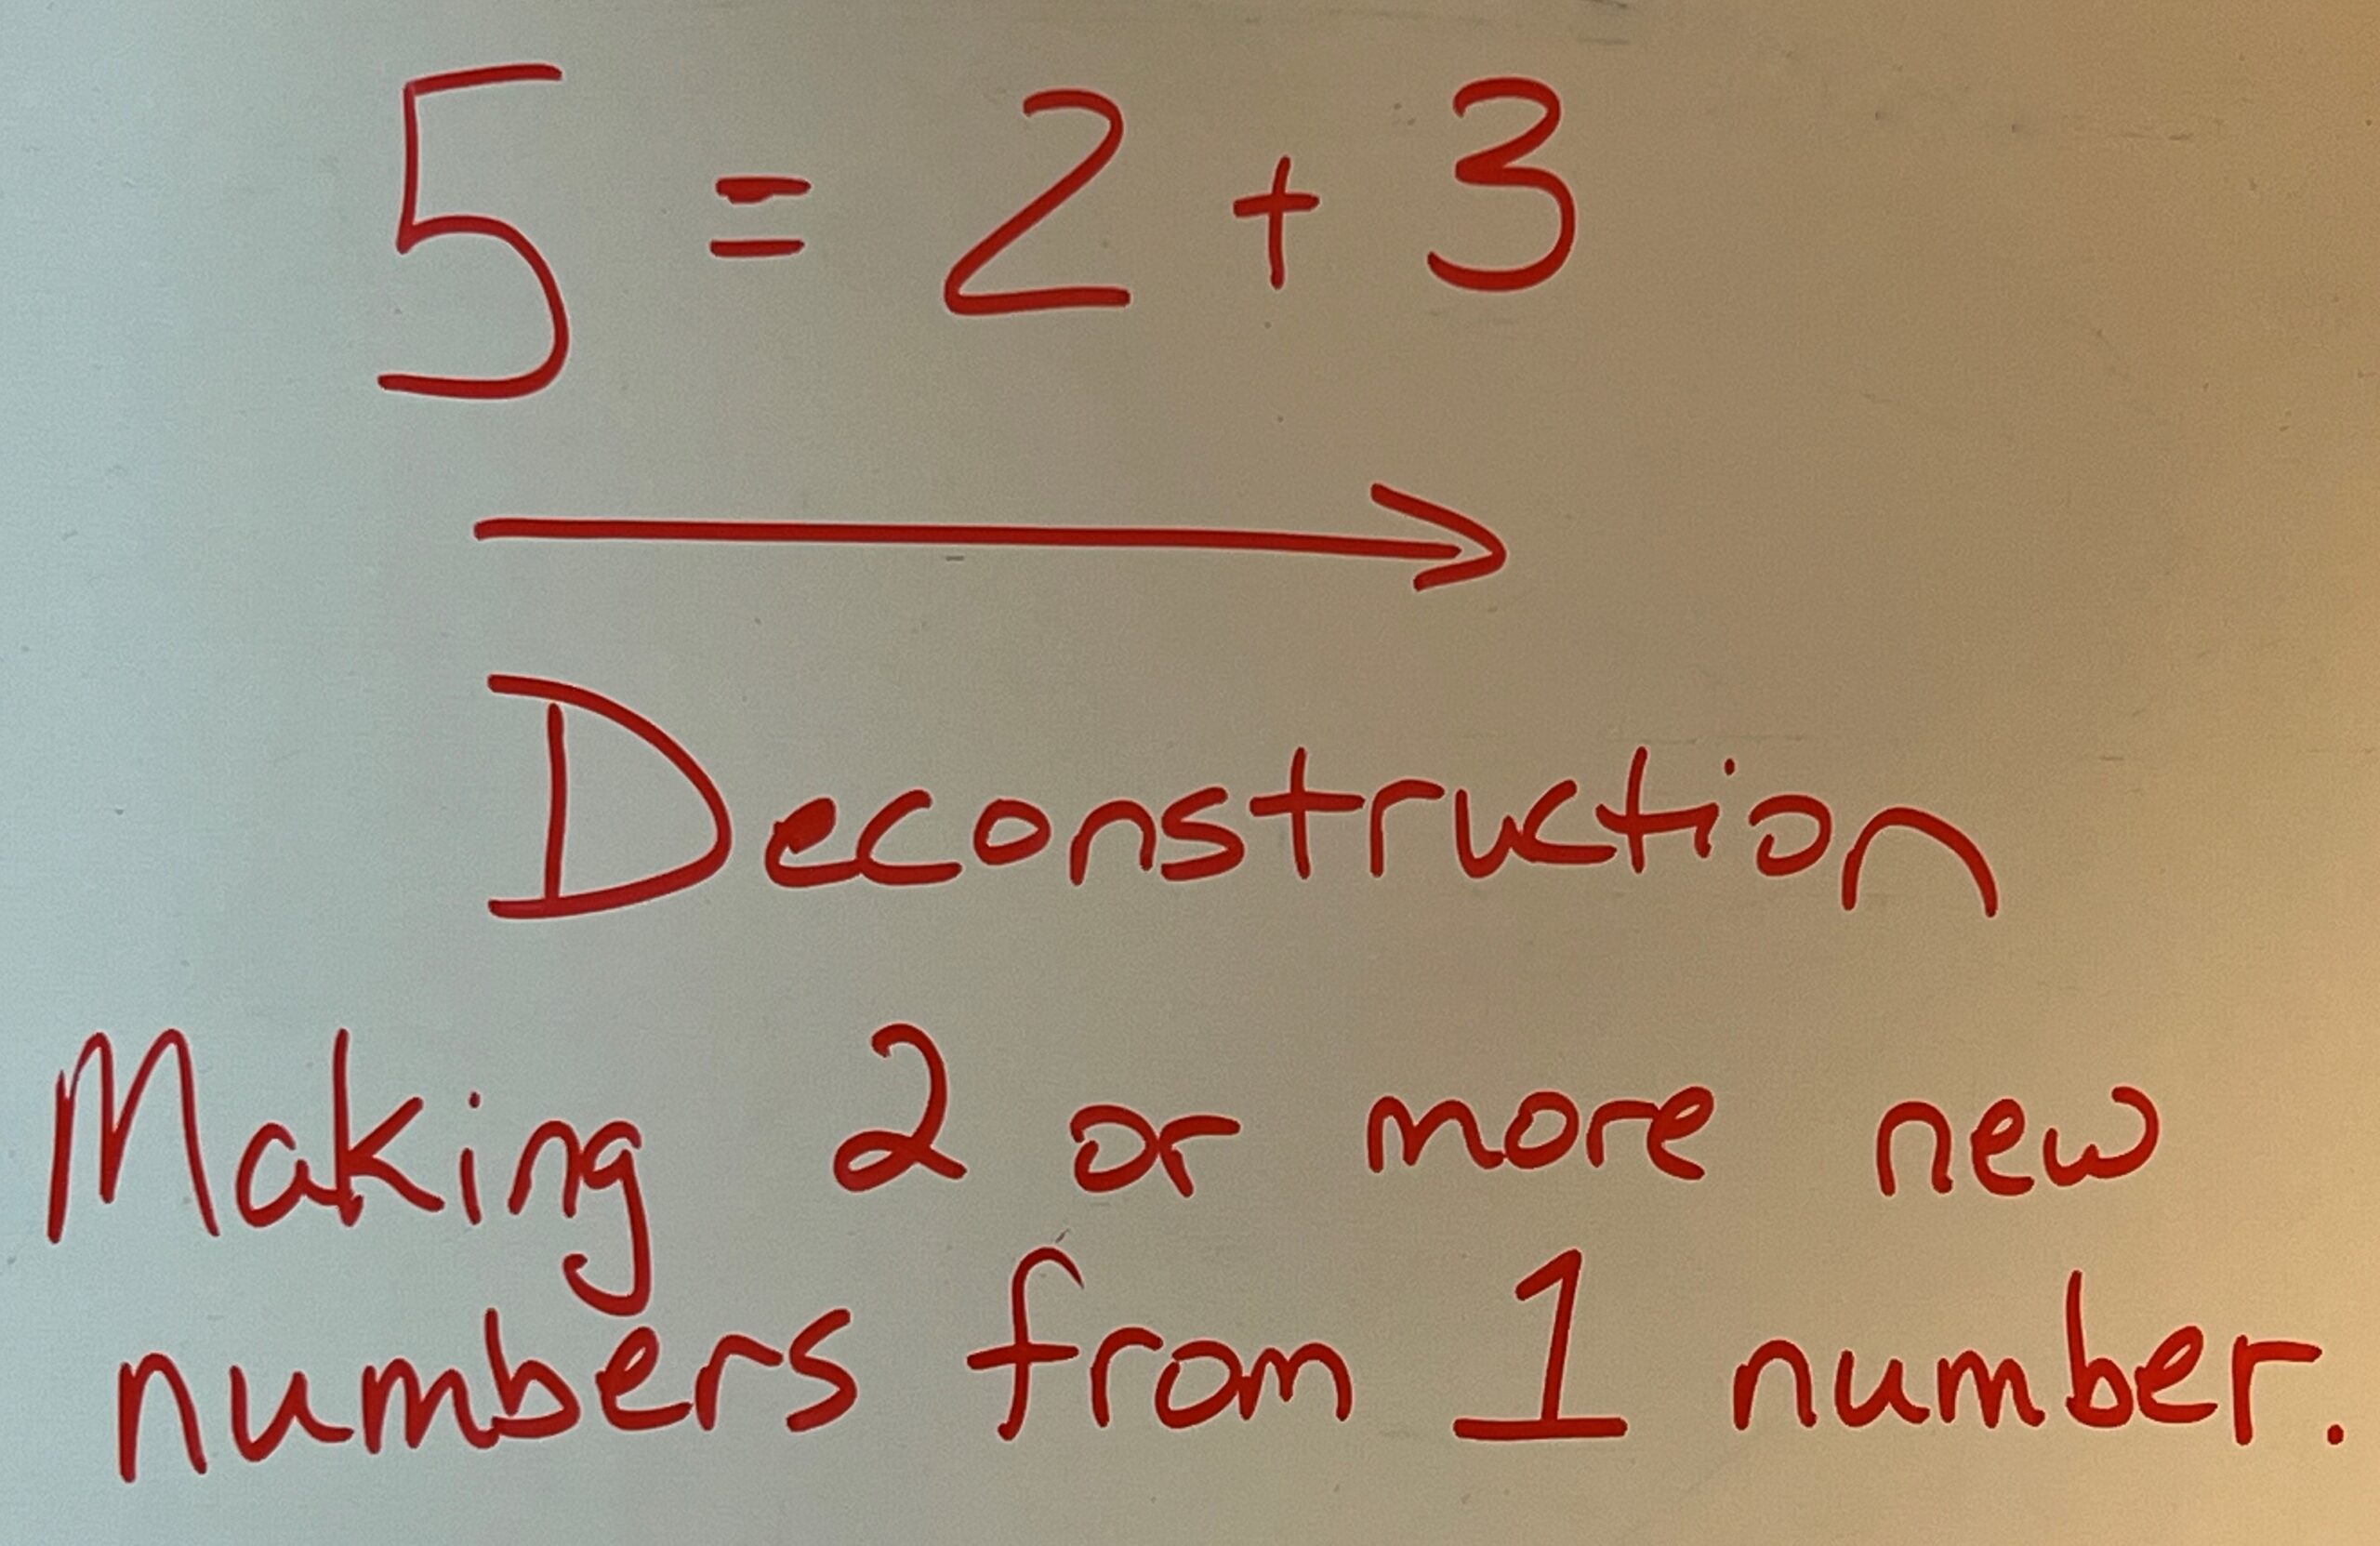 5 = 2 + 3
Deconstruction
Making 2 or more new
numbers from 1 number.